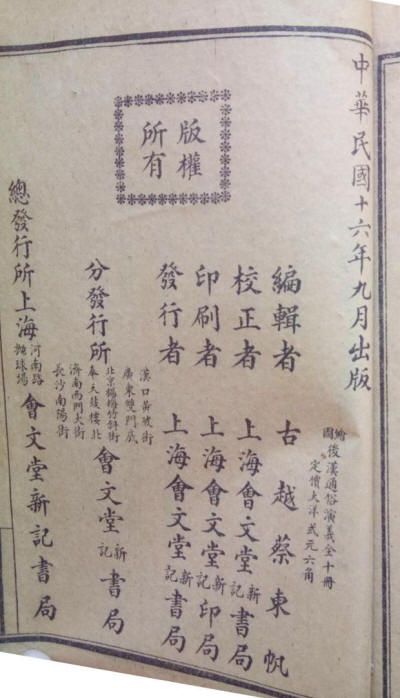 中華民國十六年九月出版
繪圖後漢通俗演義全十冊
定價大洋貳元六角
編輯者 古越蔡東帆
校正者 上海會文堂新記書局
印刷者 上海會文堂新記印局
發行者 上海會文堂新記書局
版權
所有
分發行所
漢口黃陂街
廣東雙門底
北京楊梅竹斜街
奉天鼓樓北
濟南西門大街
長沙南陽街
會文堂新記書局
總發行所上海河南路拋球場會文堂新記書局